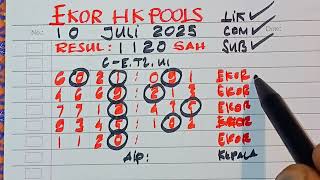 EKOR HK POOLS
LIK ✓
No.:
10 JULI 2025
COM ✓
Date:
RESUL: 1120 SAH
SUB ✓
6-E.TL.UI
6 0 2 1 : 0 9 1 EKOR
4 6 6 9 : 2 1 2 EKOR
7 7 1 8 : 4 7 5 EKOR
5 3 4 5 : 1 0 2 EKOR
1 1 2 0 KEPALA
A/P: